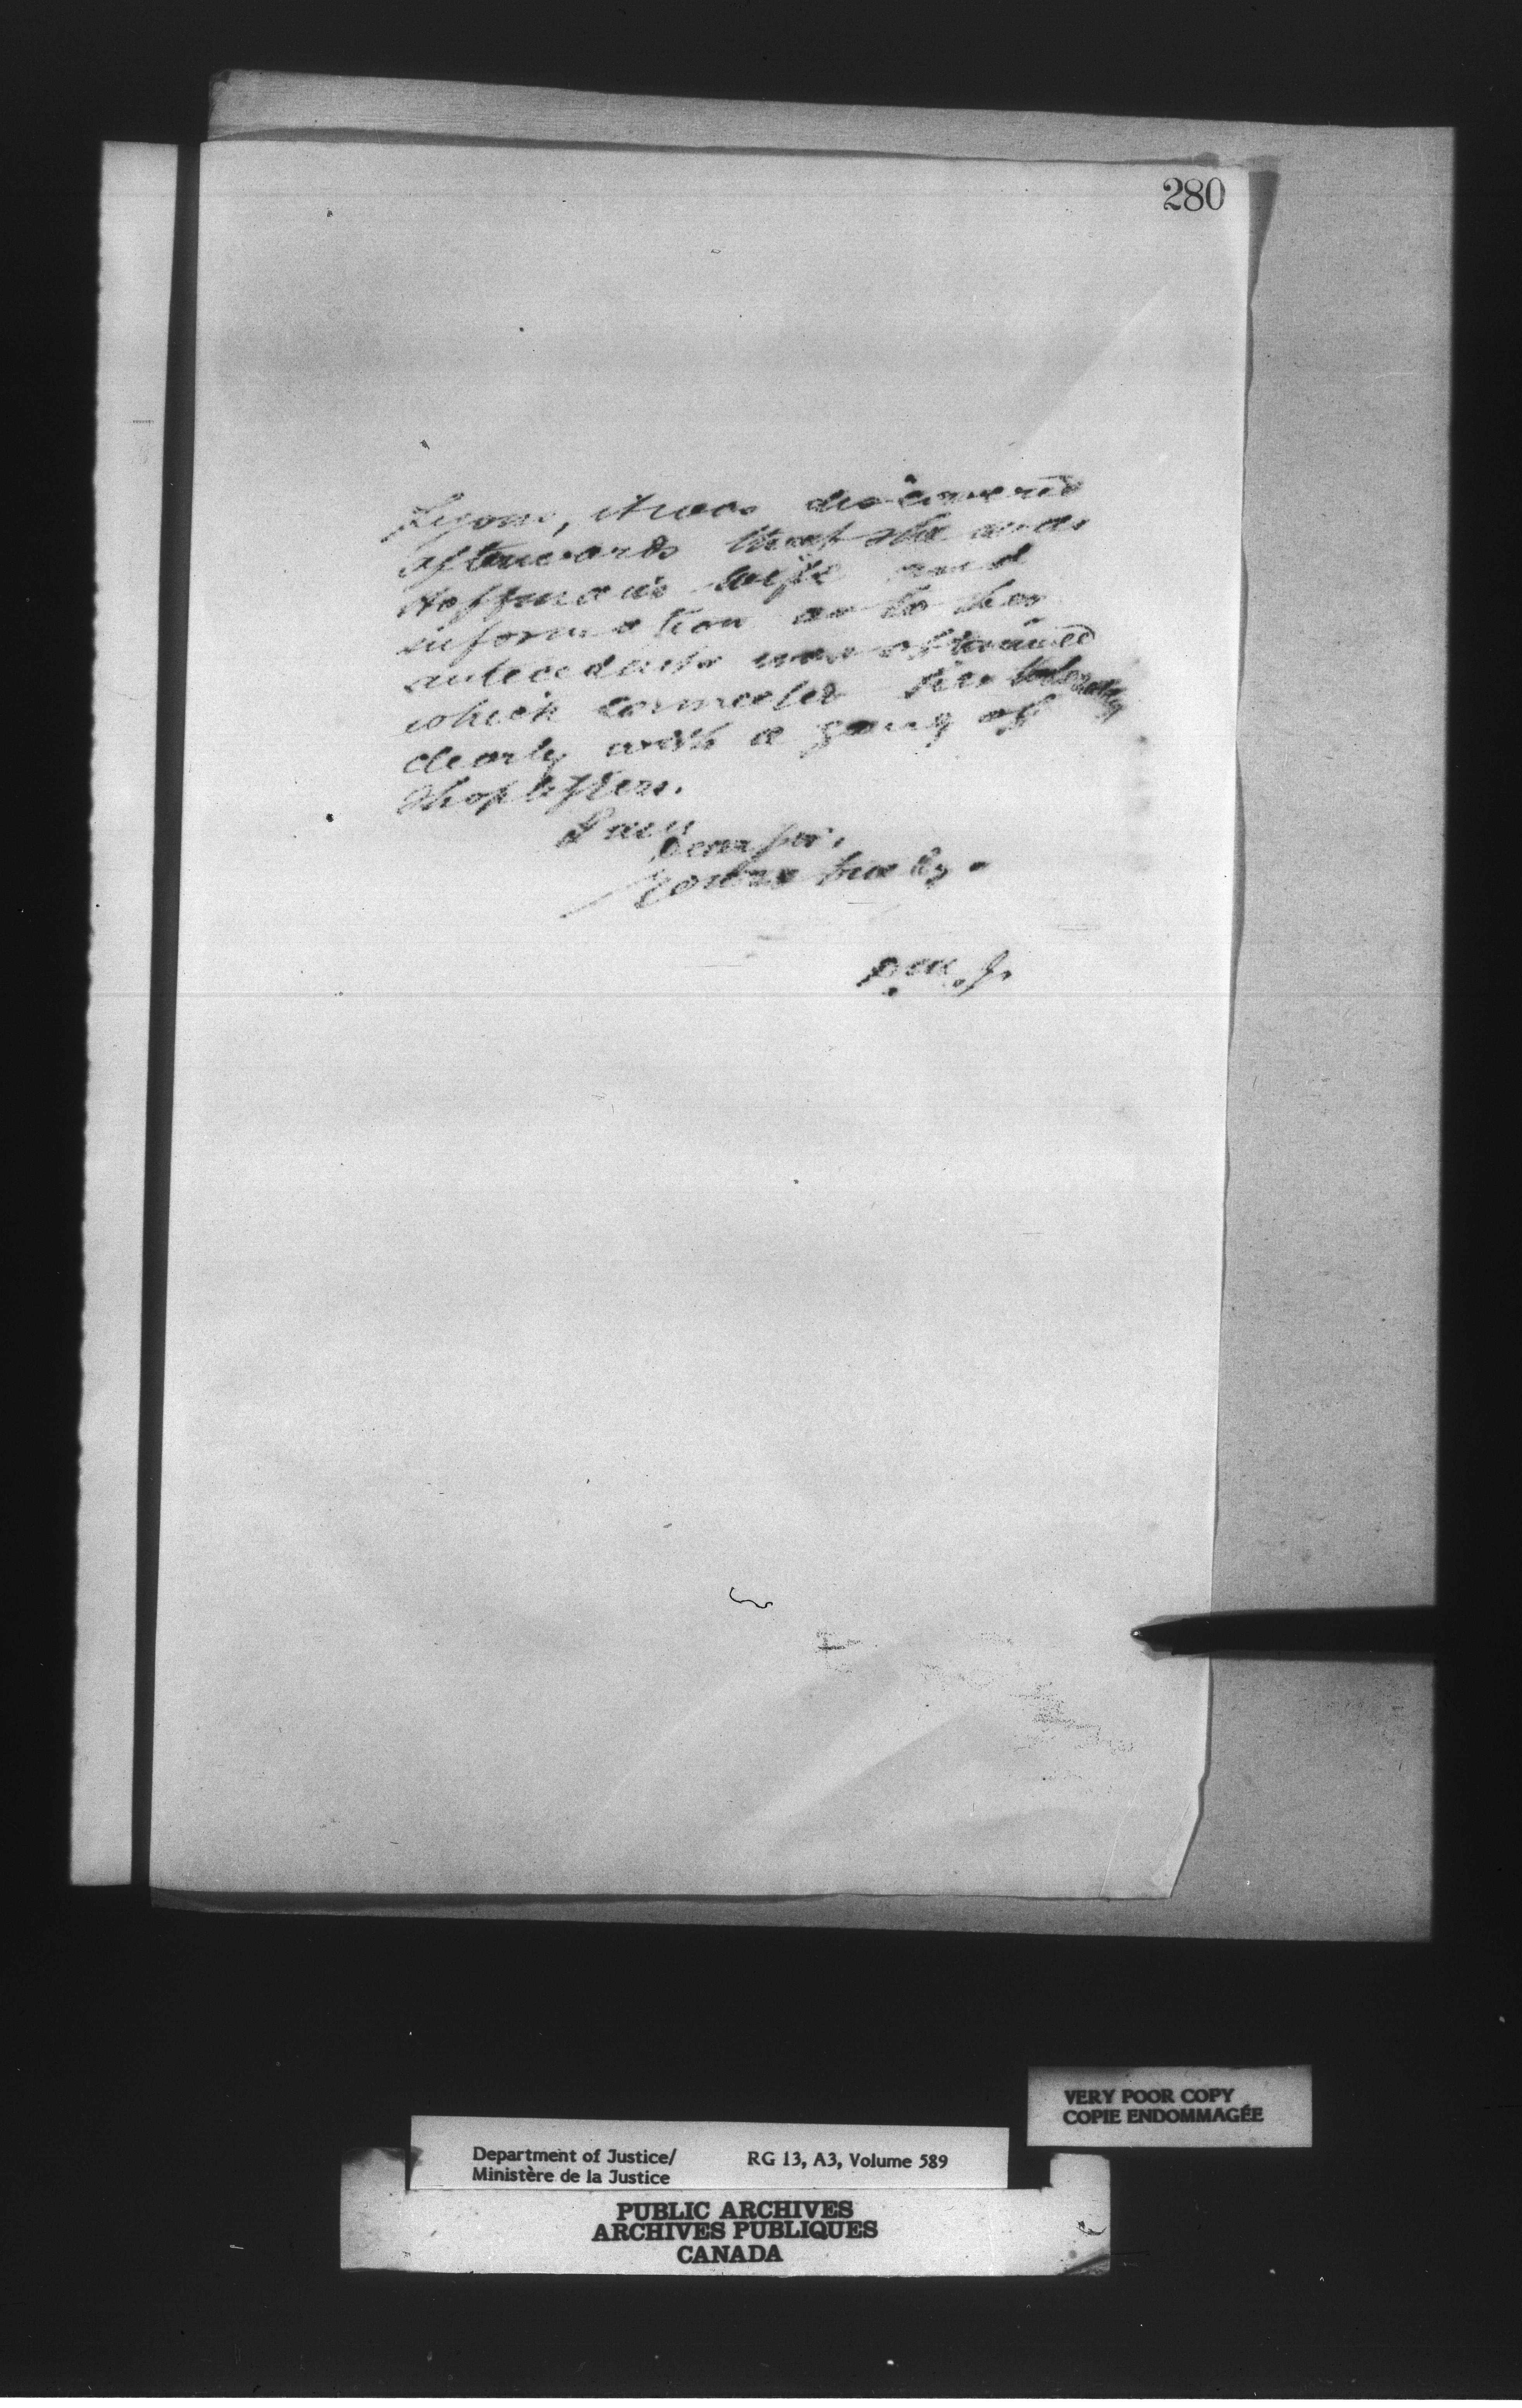 280
Lyons, it was discovered
afterwards that she was
Hoffman's wife and
information as to her
antecedents was obtained
which connected her tolerably
clearly with a gang of
Shoplifters.
I am
Dear Sir,
Yours truly.
VERY POOR COPY
COPIE ENDOMMAGÉE
Department of Justice/
Ministère de la Justice
RG 13, A3, Volume 589
PUBLIC ARCHIVES
ARCHIVES PUBLIQUES
CANADA